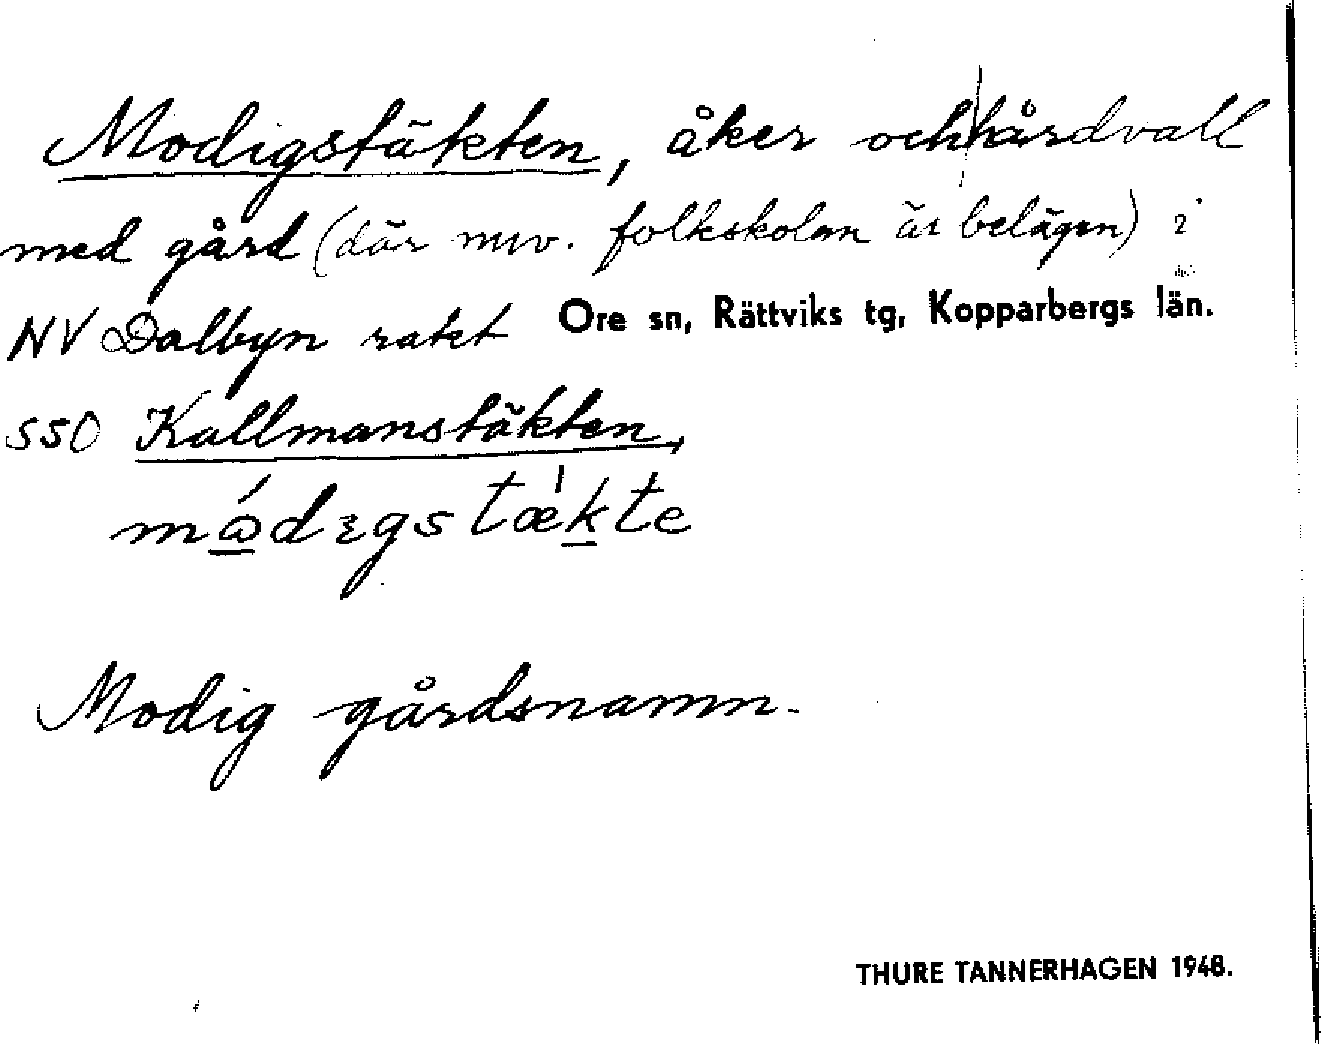 Modigstäkten, åker och hårdvall
med gård (där nuv. folkskolan är belägen) i
NV Dalbyn rakt Ore sn, Rättviks tg, Kopparbergs län.
SSO Kallmanstäkten,
Modig gårdsnamn.
THURE TANNERHAGEN 1948.